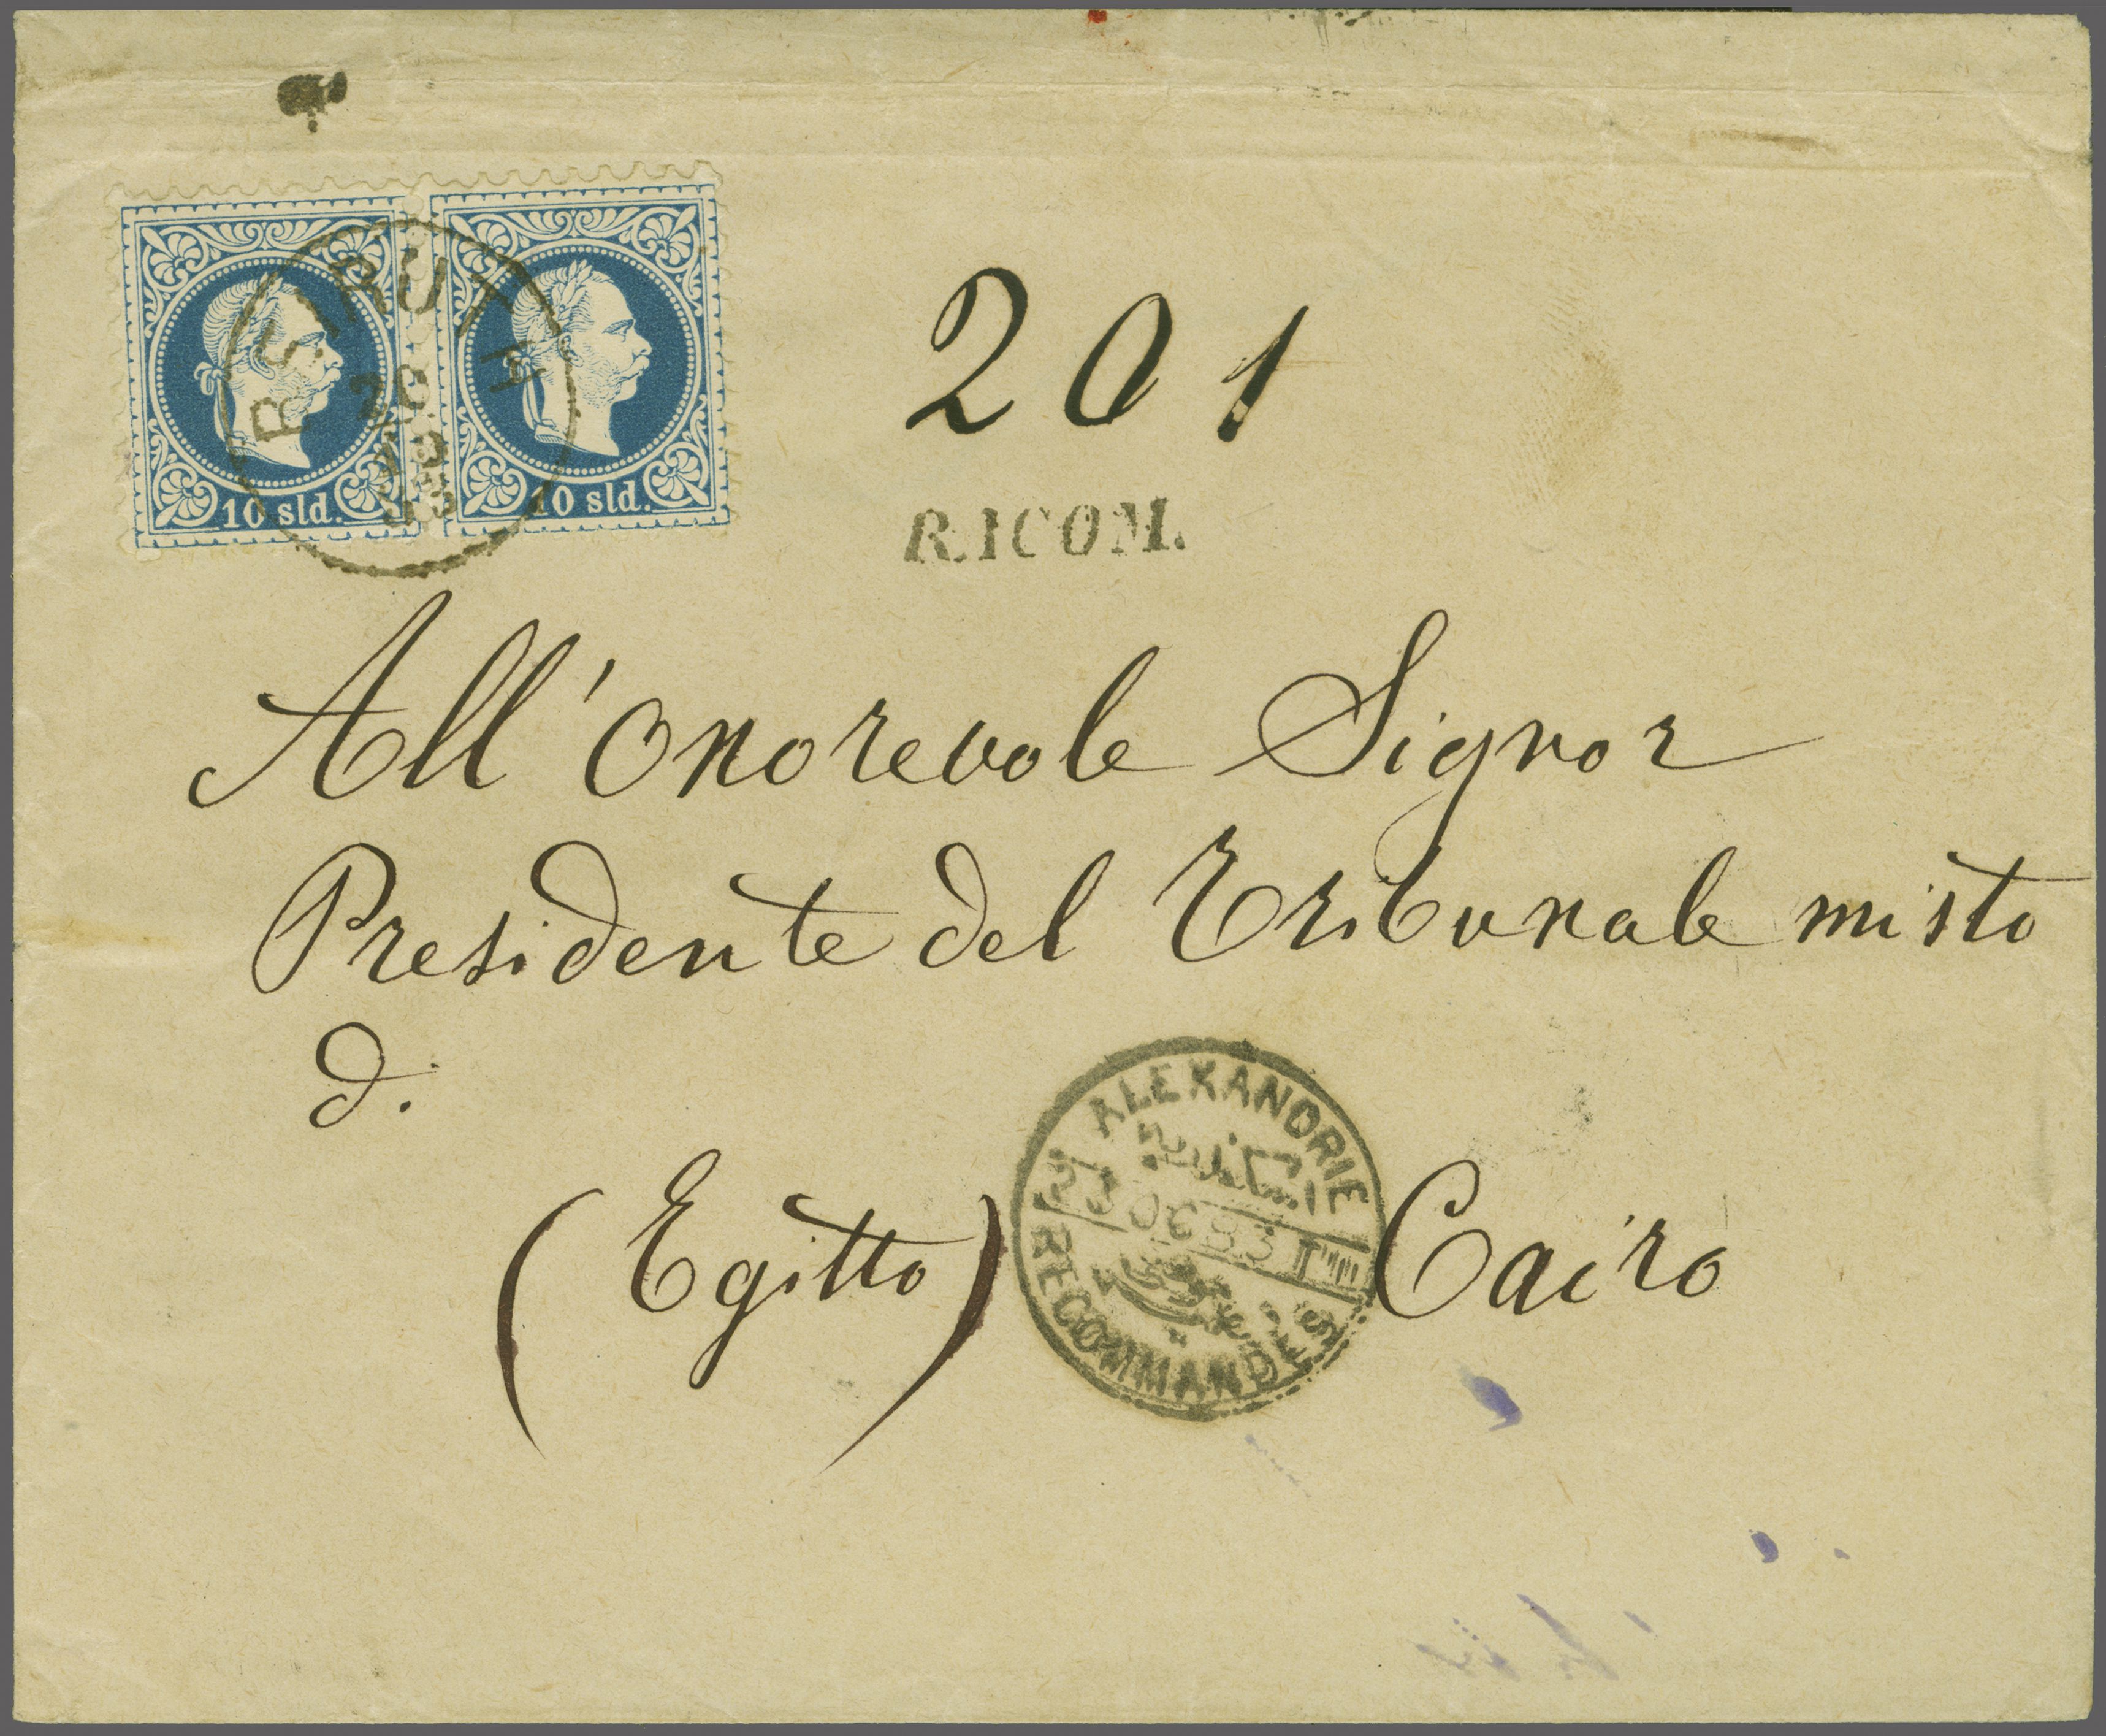 10 sld.
10 sld.
BEIRUTH
12
83
201
RICOM.
All'Onorevole Signor
Presidente del Tribunale misto
di
(Egitto) Cairo
ALEXANDRIE
DE 83 T
RECOMMANDÉS